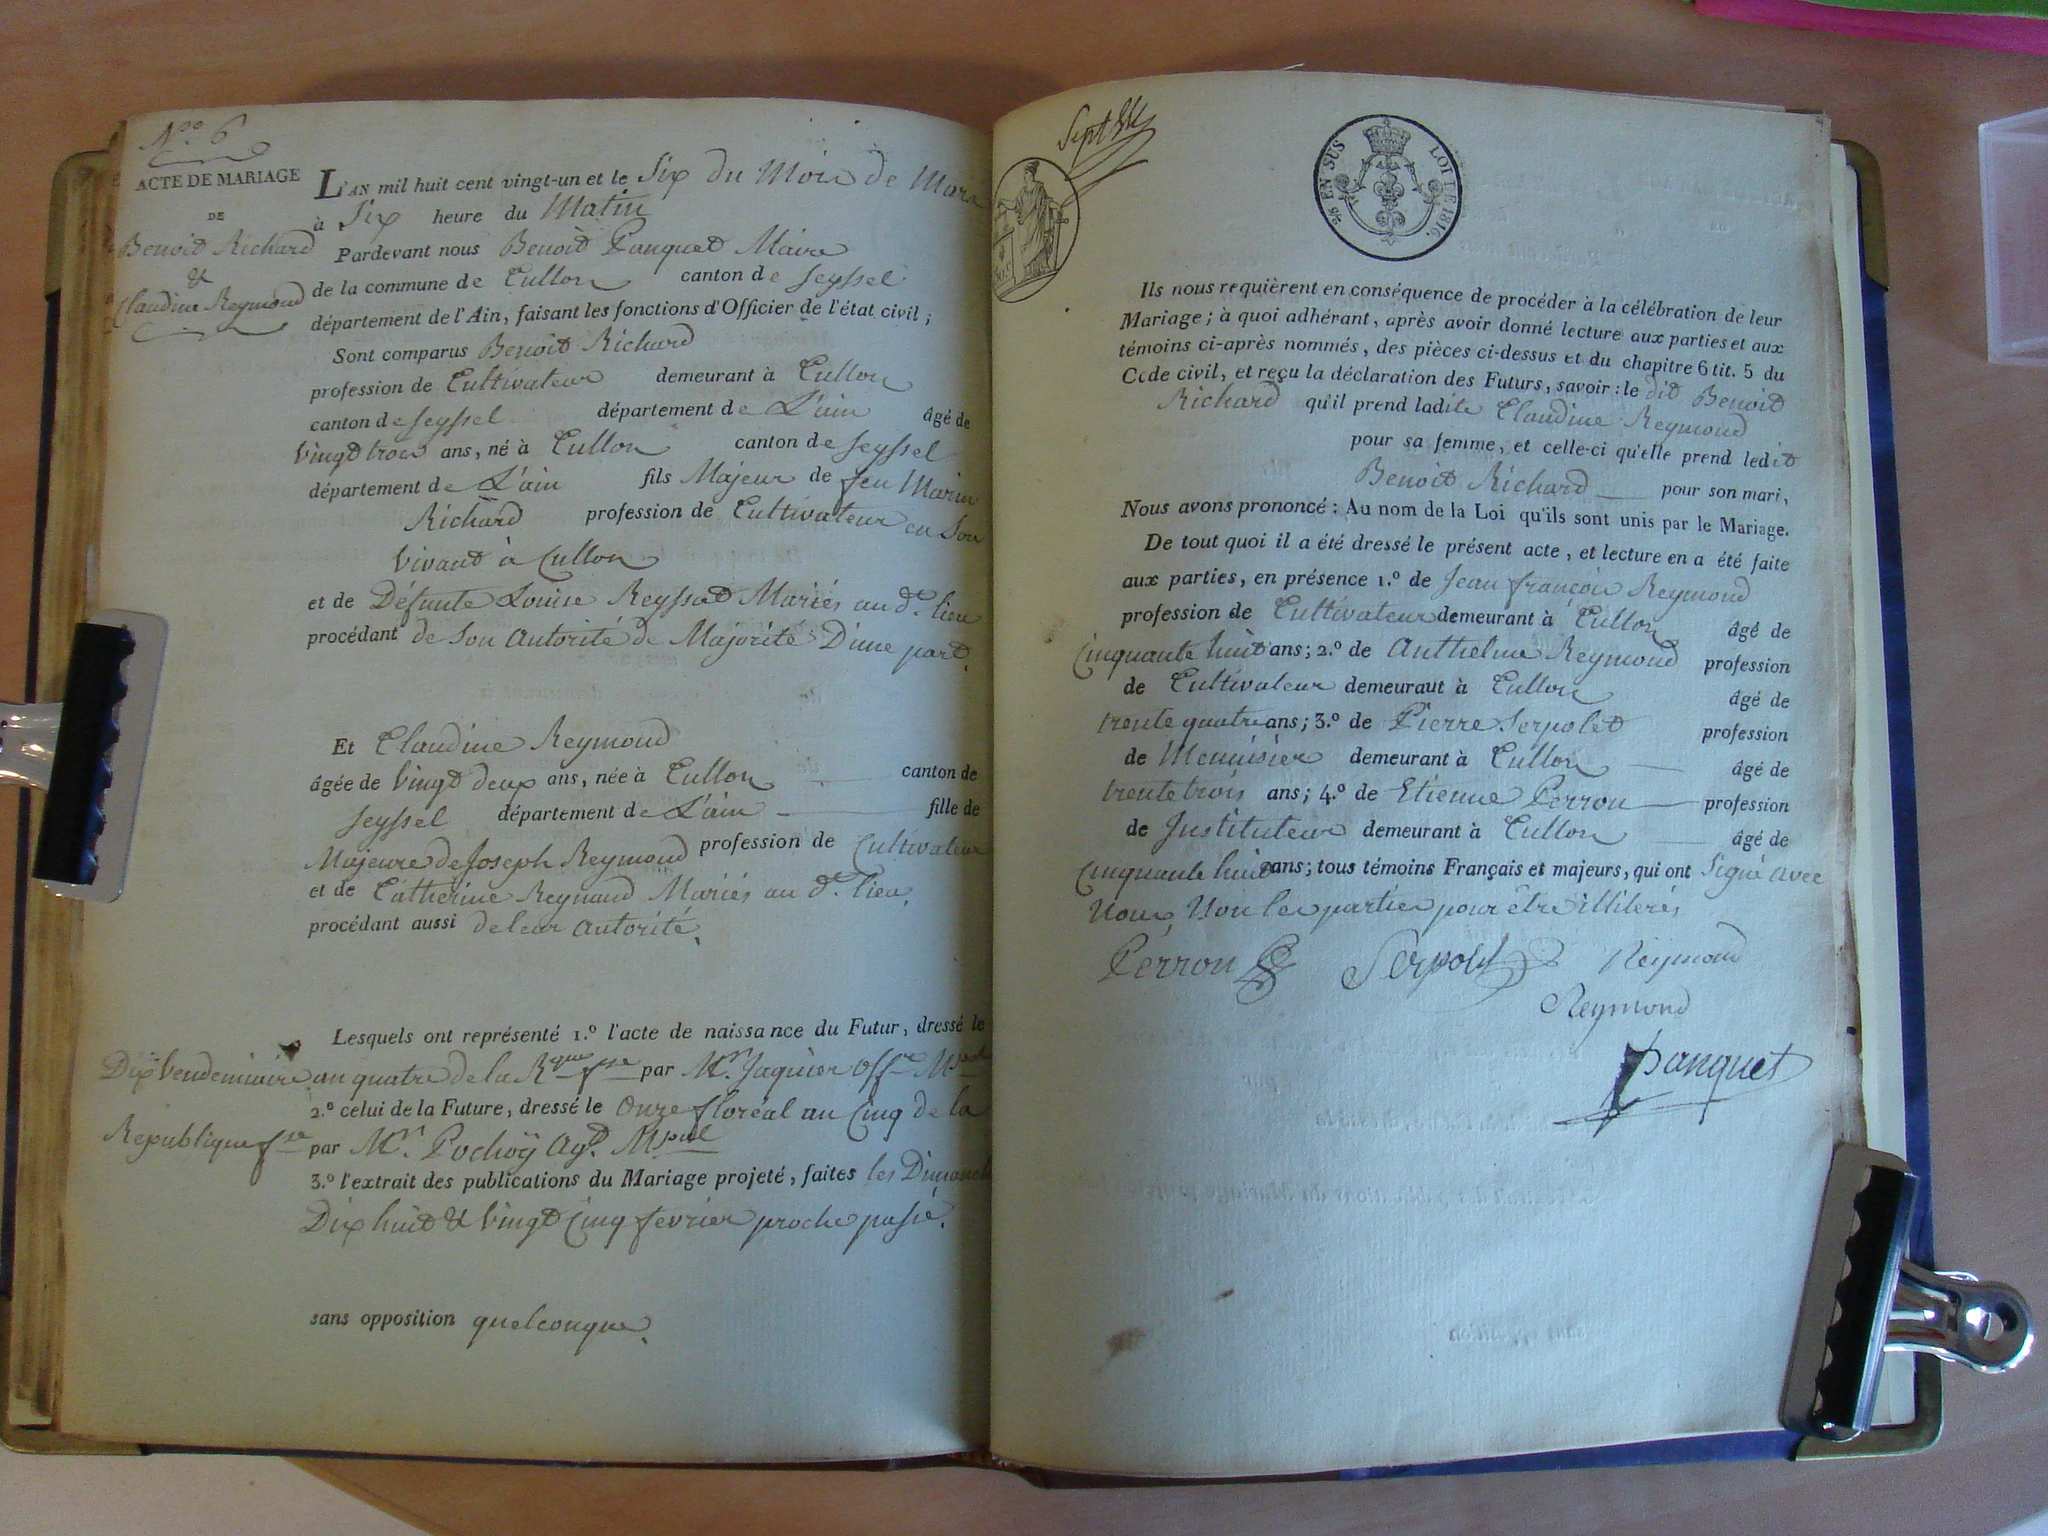 N.ro 6
ACTE DE MARIAGE
DE
Benoit Richard
&
Claudine Reymond
L'AN mil huit cent vingt-un et le Six du Mois de Mars
à Six heure du Matin
Pardevant nous Benoit Panquet Maire
de la commune de Cullon canton de Seyssel
département de l'Ain, faisant les fonctions d'Officier de l'état civil;
Sont comparus Benoit Richard
profession de Cultivateur demeurant à Cullon
canton de Seyssel département de L'ain âgé de
Vingt trois ans, né à Cullon canton de Seyssel
département de L'ain fils Majeur de feu Marin
Richard profession de Cultivateur en Son
vivant à Cullon
et de Défunte Louise Reyssat Mariés au dt. lieu
procédant de Son Autorité de Majorité D'une part.
Et Claudine Reymond
âgée de Vingt deux ans, née à Cullon canton de
Seyssel département de L'ain fille de
Majeure de Joseph Reymond profession de Cultivateur
et de Catherine Reynaud Mariés au dt. lieu,
procédant aussi de leur Autorité.
Lesquels ont représenté 1.º l'acte de naissance du Futur, dressé le
Dix Vendemiaire an quatre de la Rque fse par Mr. Jaquier offer Mpal
2.º celui de la Future, dressé le Onze floréal an Cinq de la
Republique fse par Mr. Pochoÿ agt. Mpal
3.º l'extrait des publications du Mariage projeté, faites les Dimanch
Dix huit & Vingt Cinq fevrier proche passé.
sans opposition quelconque.
Sept
2/5 EN SUS LOI DE 1816.
Ils nous requièrent en conséquence de procéder à la célébration de leur
Mariage; à quoi adhérant, après avoir donné lecture aux parties et aux
témoins ci-après nommés, des pièces ci-dessus et du chapitre 6 tit. 5 du
Code civil, et reçu la déclaration des Futurs, savoir: le dit Benoit
Richard qu'il prend ladite Claudine Reymond
pour sa femme, et celle-ci qu'elle prend ledit
Benoit Richard pour son mari,
Nous avons prononcé: Au nom de la Loi qu'ils sont unis par le Mariage.
De tout quoi il a été dressé le présent acte, et lecture en a été faite
aux parties, en présence 1.º de Jean françois Reymond
profession de Cultivateur demeurant à Cullon âgé de
Cinquante huit ans; 2.º de Anthelme Reymond profession
de Cultivateur demeurant à Cullon âgé de
trente quatre ans; 3.º de Pierre Serpolet profession
de Menuisier demeurant à Cullon âgé de
trente trois ans; 4.º de Etienne Perron profession
de Instituteur demeurant à Cullon âgé de
Cinquante huit ans; tous témoins Français et majeurs, qui ont Signé avec
Nous Non les parties pour être illiterés
Perron Serpolet Reymond
Reymond
Panquet